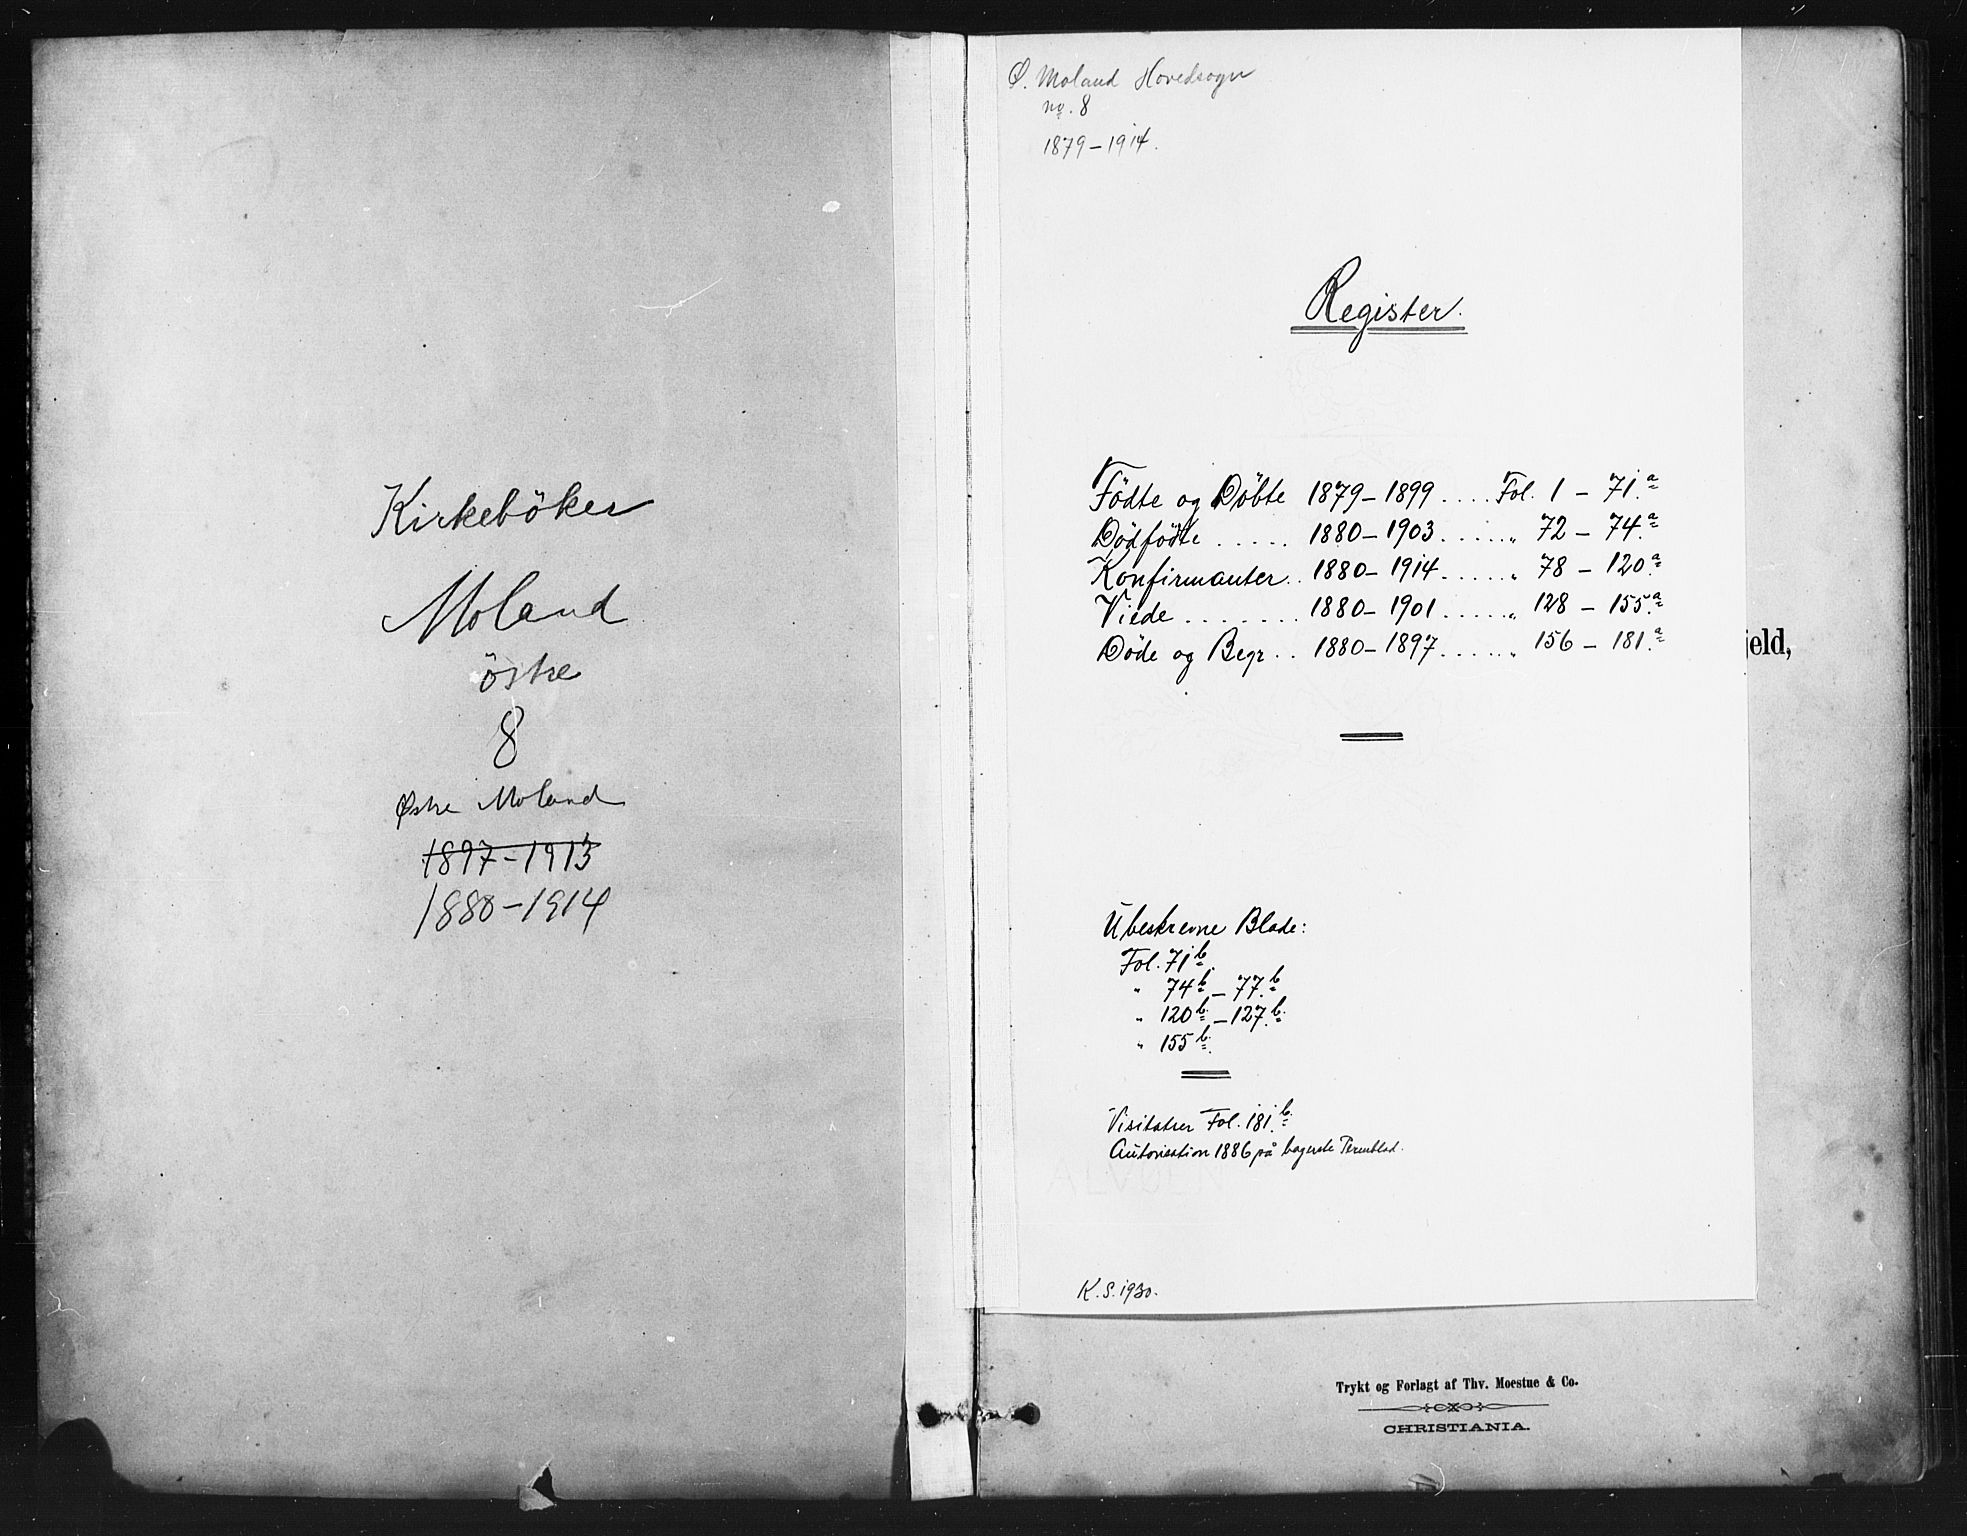 Kirkeböker
Moland
östre
8
Østre Moland
1897-1913
1880-1914
Ø. Moland Hovedsogn
no. 8
1879-1914.
Register.
Födte og Döbte 1879-1899 .... Fol. 1 - 71.a
Dödfödte ..... 1880-1903 ..... " 72 - 74.a
Konfirmanter .. 1880-1914 ..... " 78 - 120.a
Viede ....... 1880-1901 ..... " 128 - 155.a
Döde og Begr .. 1880-1897 ..... " 156 - 181.a
jeld,
Ubeskrevne Blade:
Fol. 71 b.
" 74 b - 77. b
" 120 b - 127. b.
" 155 b.
Visitatser Fol. 181. b.
Autorisation 1886 på bagerste Permblad.
K. S. 1930.
Trykt og Forlagt af Thv. Moestue & Co.
CHRISTIANIA.